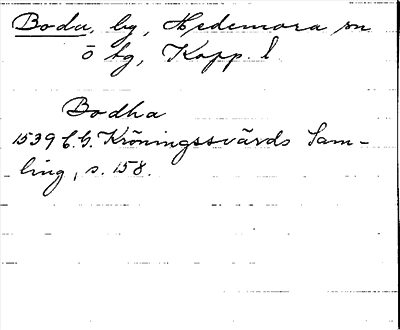 Boda, by, Hedemora sn
ö tg, Kopp. l.
Bodha
1539 C. G. Kröningssvärds Sam-
ling, s. 158.